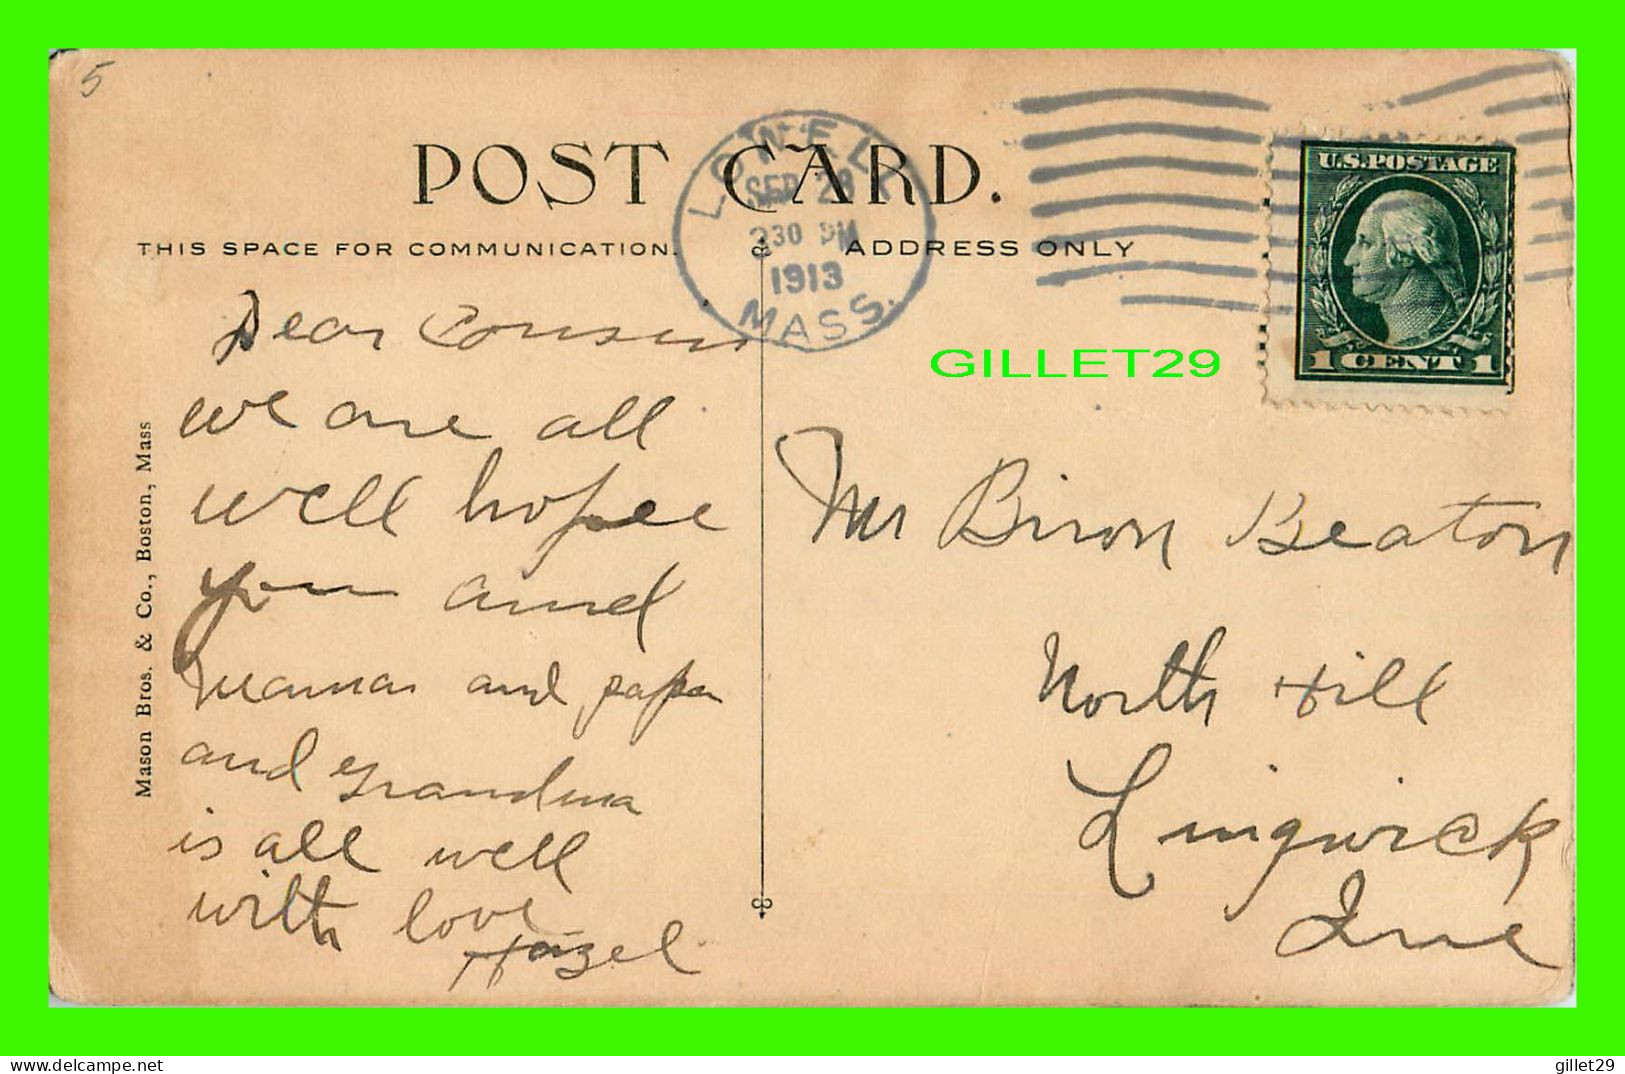 5
POST CARD.
LOWELL
SEP 28
330 PM
1913
MASS.
U.S.POSTAGE
1 CENT 1
THIS SPACE FOR COMMUNICATION.
ADDRESS ONLY
GILLET29
Dear Cousin
we are all
well hopee
you annd
mamar and papa
and grandma
is all well
with love
Hazel
Mr Biron Beaton
North Hill
Lingwick
Que
Mason Bros. & Co., Boston, Mass
delcampe.net
gillet29